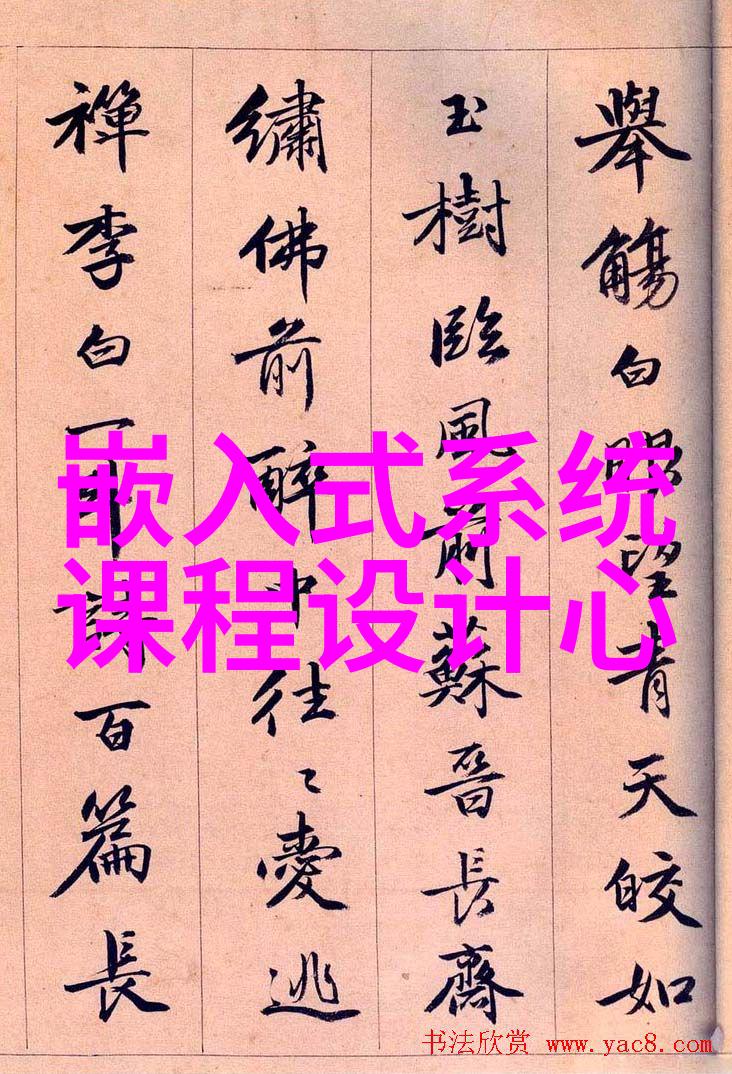 舉觴白眼望青天皎如
玉樹臨風前蘇晉長齋
繡佛前醉中往〻愛逃
禪李白一斗詩百篇長
嵌入式系统
课程设计心
书法欣赏 www.yac8.com